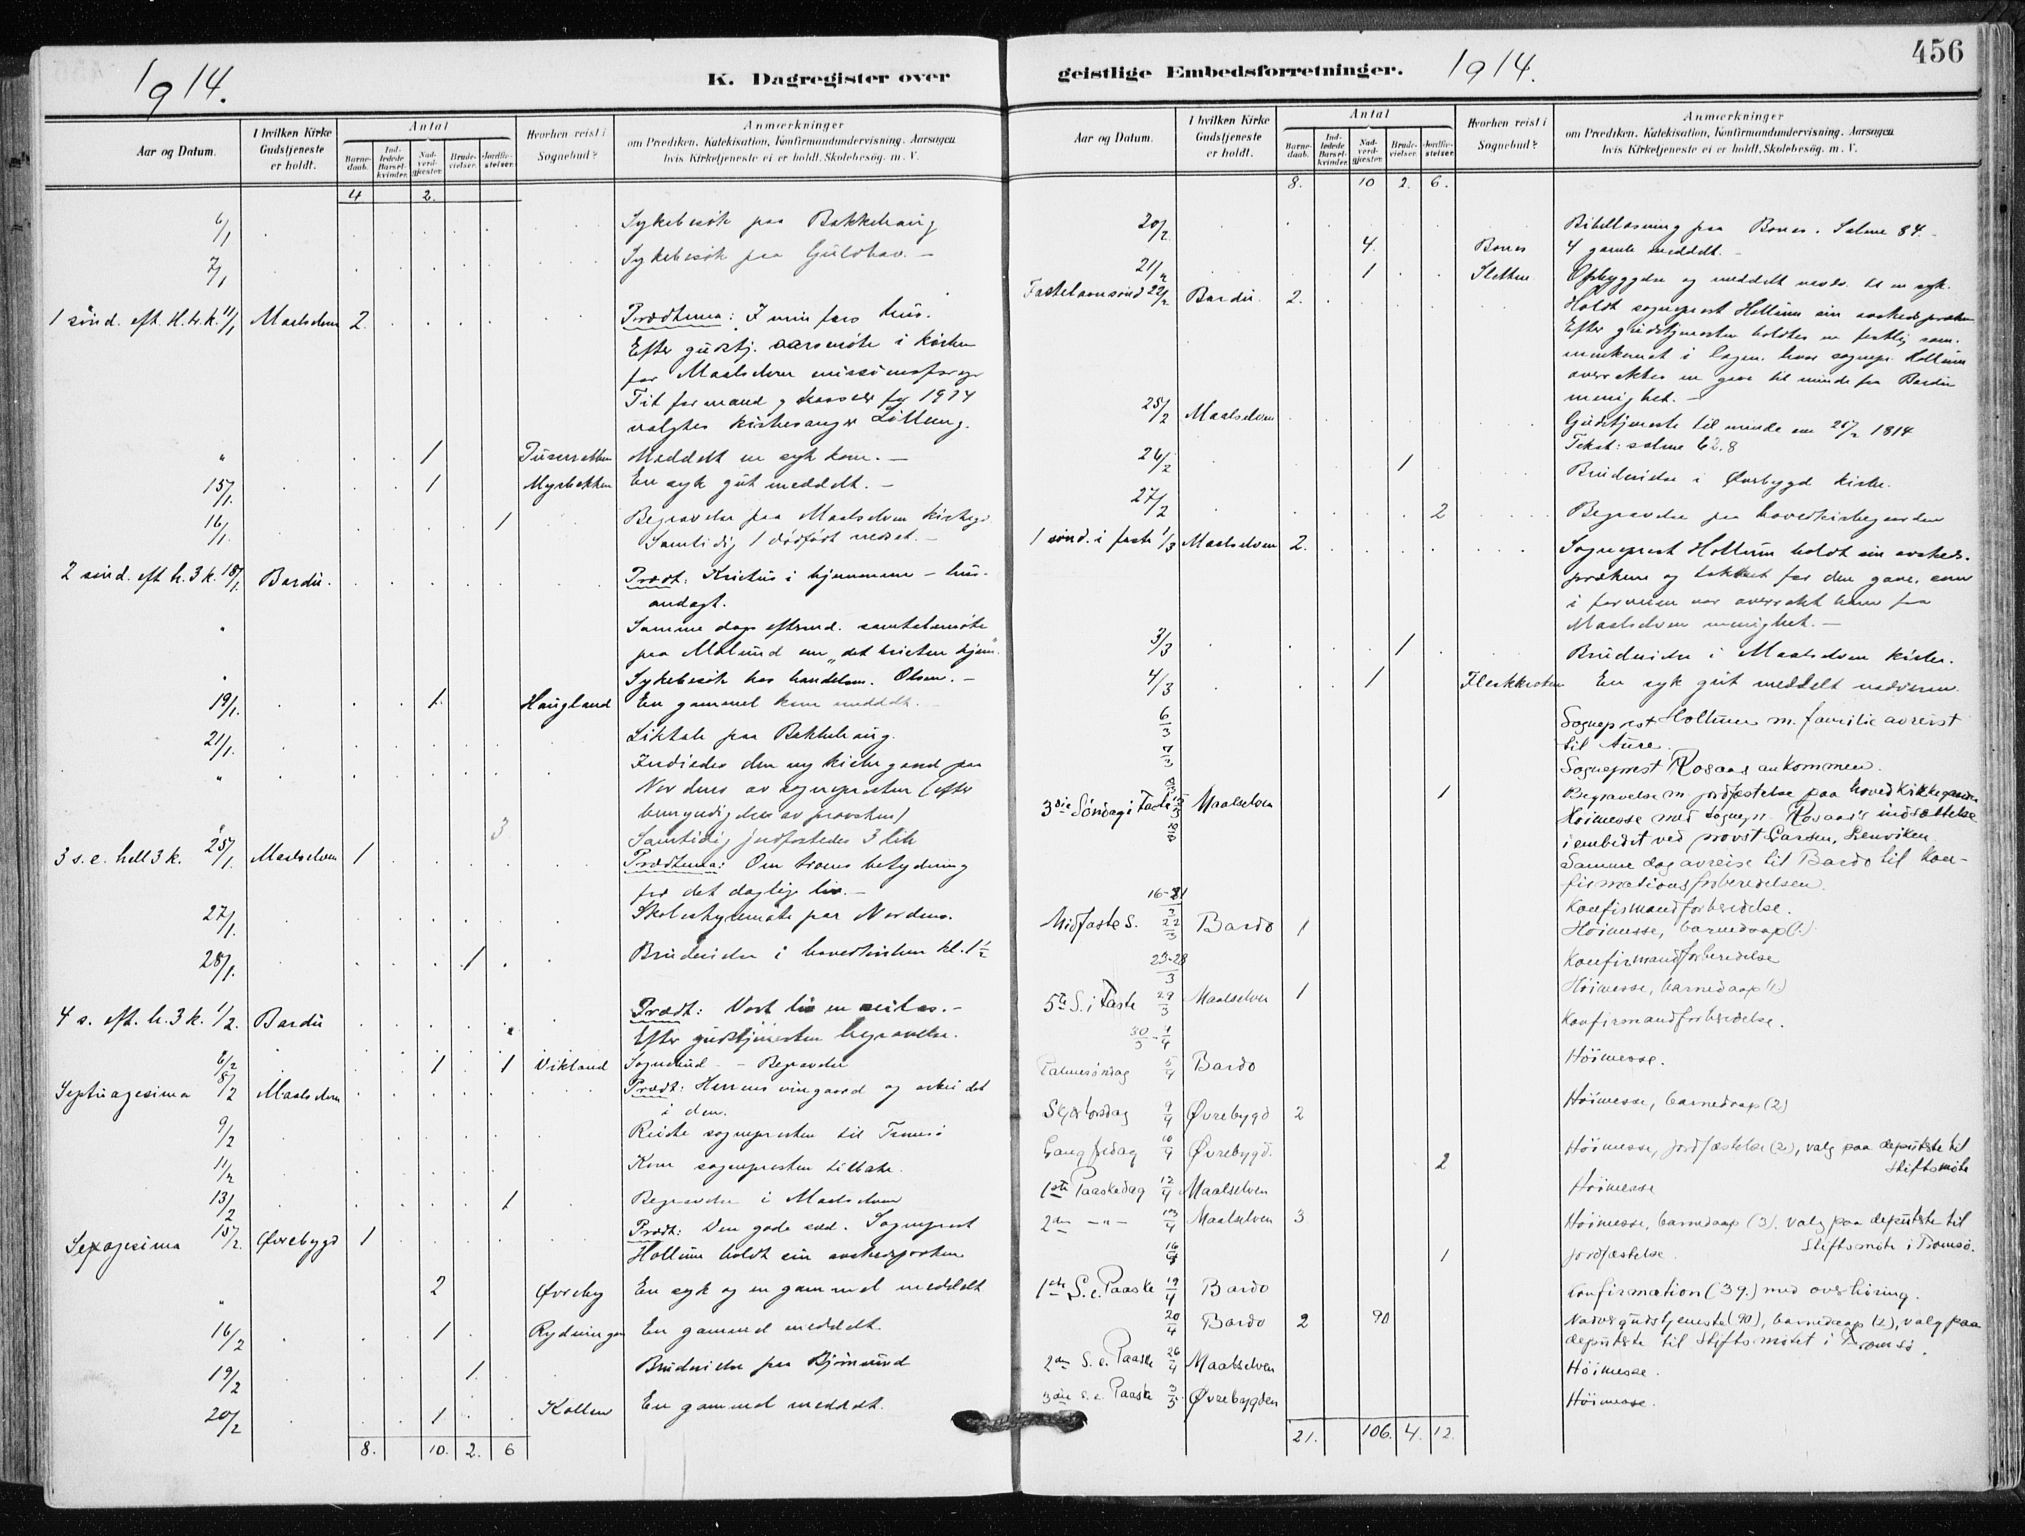 1914.
K. Dagregister over
Aar og Datum.
I hvilken Kirke Gudstjeneste er holdt.
Antal
Barnedaab.
Indledede Barselkvinder.
Nadverdgjester.
Brudevielser.
Jordfæstelser.
Hvorhen reist i Sognebud?
Anmærkninger
om Prædiken, Katekisation, Konfirmandundervisning. Aarsagen
hvis Kirketjeneste ei er holdt. Skolebesøg. m. V.
4 2.
6/1 Sykebesøk paa Bakkehaug
7/1 Sykebesøk paa Guldhav. —
1 sønd. eft. h. 3 k. 11/1 Maalselven 2. Prædtema: I min fars hus.
Efter gudstj. aarsmøte i kirken
for Maalselven missionsforen.
Til formand og kasserer for 1914
valgtes kirkesanger Løttung.
" 1 Meddelt en syk kone. —
15/1. 1 Myrbakken En syk gut meddelt. —
16/1. 1 Begravelse paa Maalselven kirkeg.
Samtidig 1 dødfødt nedsat. —
2 sønd. eft h. 3 k. 18/1. Bardu. Prædt: Kristus i hjemmene – hus-
andagt.
" Samme dags efterm. samtalemøte
paa Molund om „det kristne hjem".
" Sykebesøk hos handelsm. Olsen. —
19/1. 1. Haugland En gammel kone meddelt. —
21/1. Liktale paa Bakkehaug.
" Indviedes den ny kirkegaard paa
Nordmo av sognepresten (efter
bemyndigelse av provsten)
3 Samtidig jordfæstedes 3 lik
3 s. e. hell 3 k. 25/1. Maalselven 1 Prædtema: Om troens betydning
for det daglige liv. —
27/1. Skolestyremøte paa Nordmo.
28/1. 1 Brudevielse i hovedkirken kl. 1 1/2
4 s. eft. h. 3 k. 1/2. Bardu Prædt: Vort liv en seilas. —
Efter gudstjenesten begravelse.
6/2 1 1 Vikland Sognebud – Begravelse
Septuagesima 8/2 Maalselven Prædt: Herrens vingaard og arbeidet
i den.
9/2 Reiste sognepresten til Tromsø
11/2 Kom sognepresten tilbake.
13/2 1 Begravelse i Maalselven
Sexagesima 15/2. Øvrebygd 1 Prædt: Den gode sæd. Sogneprest
Holtum holdt sin avskedspræken
" 2 Øvreby En syk og en gammel meddelt
16/2 1 Rydningen En gammel meddelt.
19/2 1. Brudevielse paa Bjørnsund
20/2 1 Kollen En gammel meddelt.
8. 10. 2. 6
456
geistlige Embedsforretninger.
1914.
Aar og Datum.
I hvilken Kirke Gudstjeneste er holdt.
Antal
Barnedaab.
Indledede Barselkvinder.
Nadverdgjester.
Brudevielser.
Jordfæstelser.
Hvorhen reist i Sognebud?
Anmærkninger
om Prædiken, Katekisation, Konfirmandundervisning. Aarsagen
hvis Kirketjeneste ei er holdt. Skolebesøg. m. V.
8. 10 2. 6.
20/2. Bibellæsning paa Bones. Salme 84. —
4. Bones 4 gamle meddelt. —
21/2 1 Sletten Opbyggelse og meddelt nadv. til en syk.
Fastelavnsønd 22/2 Bardu. 2. Holdt sogneprest Holtum sin avskedspræken
Efter gudstjenesten holdtes en festlig sam-
menkomst i logen, hvor sognepr. Holtum
overraktes en gave til minde fra Bardu
menighet. —
25/2 Maalselven Gudstjeneste til minde om 25/2 1814
Tekst: salme 62.8
26/2 1 Brudevielse i Øvrebygd kirke.
27/2 2 Begravelse paa hovedkirkegaarden
1 sønd. i faste 1/3 Maalselven 2. Sogneprest Holtum holdt sin avskeds-
præken og takket for den gave, som
i forveien var overrakt ham fra
Maalselven menighet. —
3/3 1 Brudevielse i Maalselven kirke.
4/3 1 Fleskkroken En syk gut meddelt nadveren.
6/3 Sogneprest Holtum m. familie avreist
til Aure.
7/3 Sogneprest Rosaas ankommen.
1 Begravelse m. jordfæstelse paa hovedkirkegaarden
3die Søndag i Faste 15/3 Maalselven Høimesse med sognepr. Rosaas's indsættelse
i embedet ved provst Carsen, Lenviken.
Samme dag avreise til Bardo til kon-
firmationsforberedelsen.
16-21/3 Konfirmandforberedelse.
Midfaste S. 22/3 Bardo 1 Høimesse, barnedaap (1.)
23-28/3 Konfirmandforberedelse
5te S. i Faste 29/3 Maalselven 1 Høimesse, barnedaap (1)
30/3-1/4 Konfirmandforberedelse.
Palmesøndag 5/4 Bardo Høimesse.
Skjærtorsdag 9/4 Øvrebygd 2 Høimesse, barnedaap (2)
Langfredag 10/4 Øvrebygd. 2 Høimesse, jordfæstelse (2), valg paa deputerte til
Stiftsmøte
1ste Paaskedag 12/4 Maalselven Høimesse
2den —"— 13/4 Maalselven 3 Høimesse, barnedaap (3). Valg paa deputerte til
Stiftsmøte i Tromsø.
16/4 1 Jordfæstelse.
1ste S. e. Paaske 19/4 Bardo Confirmation (39.) med overhøring.
20/4 Bardo 2 90 Nadv.gudstjeneste (90), barnedaap (2), valg paa
deputerte til Stiftsmøtet i Tromsø.
2den S. e. Paaske 26/4 Maalselven Høimesse.
3die S. e. Paaske 3/5. Øvrebygden Høimesse.
21. 106. 4. 12.